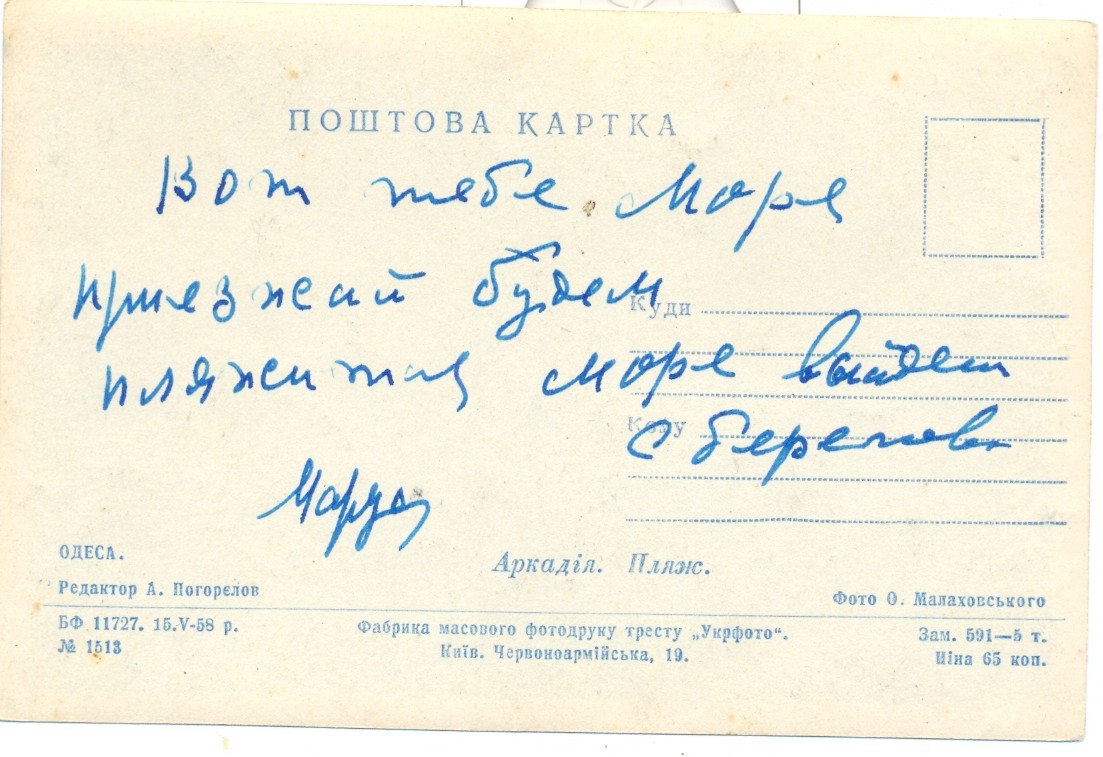 ПОШТОВА КАРТКА
Вот тебе море
приезжай будем
Куди
пляжитса море выйдет
Кому
с берегов
Маруся
ОДЕСА.
Аркадія. Пляж.
Редактор А. Погорєлов
Фото О. Малаховського
БФ 11727. 15.V-58 р.
Фабрика масового фотодруку тресту „Укрфото“.
Зам. 591—5 т.
№ 1513
Київ. Червоноармійська, 19.
Ціна 65 коп.